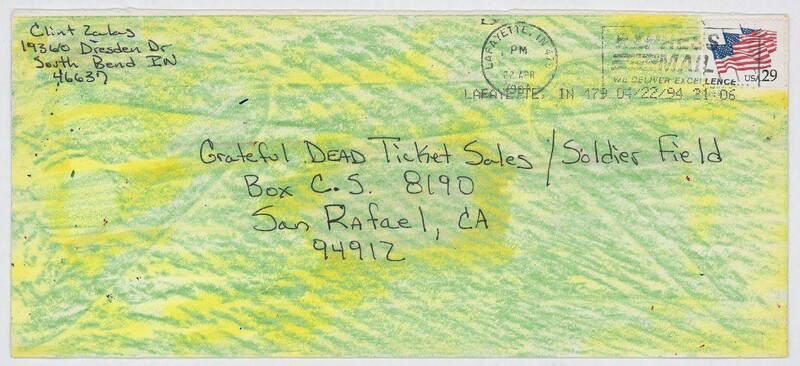 Clint Zalas
19360 Dresden Dr
South Bend IN
46637
LAFAYETTE, IN 479
PM
22 APR
1994
EXPRESS
MAIL
WE DELIVER EXCELLENCE...
USA 29
LAFAYETTE, IN 479 04/22/94 21:06
Grateful DEAD Ticket Sales / Soldier Field
Box C.S. 8190
San Rafael, CA
94912